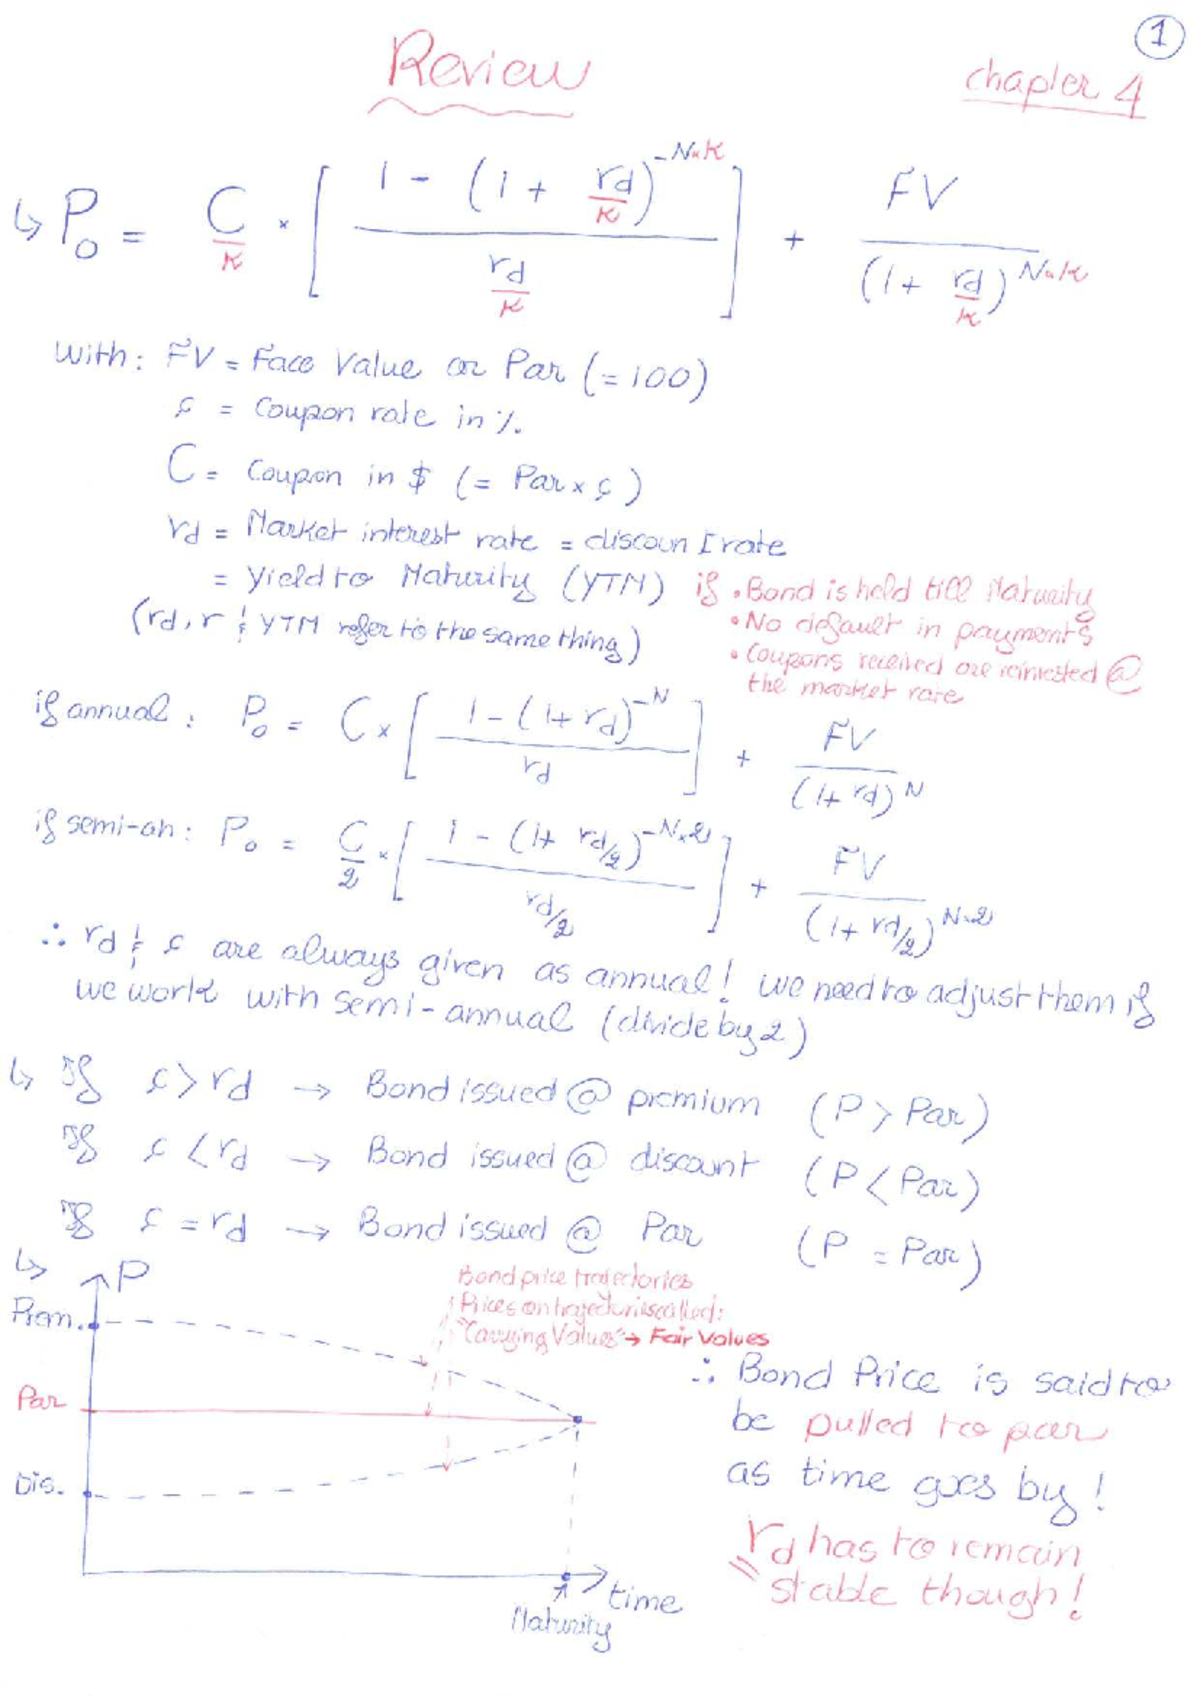 1
Review
chapter 4
↳ P₀ = C/K × [ (1 - (1 + rd/K)^-N×K) / (rd/K) ] + FV / (1 + rd/K)^N×K
With: FV = Face Value or Par (= 100)
c = Coupon rate in %.
C = Coupon in $ (= Par x c)
rd = Market interest rate = discount rate
= Yield to Maturity (YTM) if • Bond is held till Maturity
(rd, r & YTM refer to the same thing) • No default in payments
• Coupons received are reinvested @
the market rate
if annual: P₀ = C × [ (1 - (1 + rd)^-N) / rd ] + FV / (1 + rd)^N
if semi-an: P₀ = C/2 × [ (1 - (1 + rd/2)^-N×2) / (rd/2) ] + FV / (1 + rd/2)^N×2
∴ rd & c are always given as annual! we need to adjust them if
we work with semi-annual (divide by 2)
↳ If c > rd → Bond issued @ premium (P > Par)
If c < rd → Bond issued @ discount (P < Par)
If c = rd → Bond issued @ Par (P = Par)
↳ P
Bond price trajectories
Prices on trajectories called:
"Carrying Values" → Fair Values
Prem.
Par
Dis.
time
Maturity
∴ Bond Price is said to
be pulled to par
as time goes by!
rd has to remain
stable though!